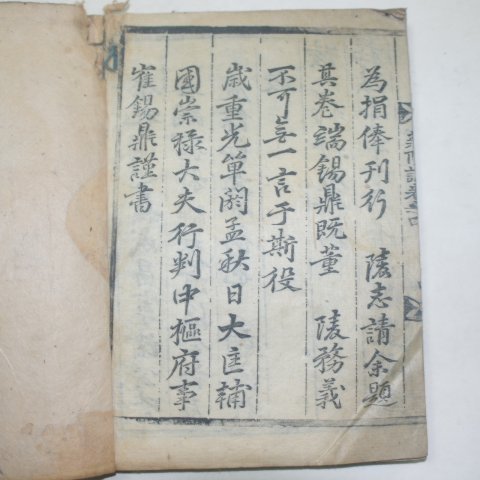 為捐俸刊行　陵志請余題
其卷端錫鼎既董　陵務義
不可無一言于斯役
歲重光單閼孟秋日大匡輔
國崇祿大夫行判中樞府事
崔錫鼎謹書